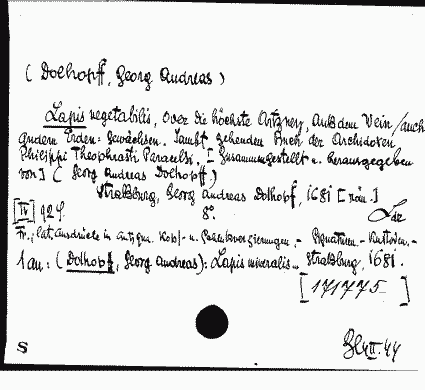 ( Dolhopff, Georg Andreas )
Lapis vegetabilis, oder die höchste Artzney, auß dem Wein / auch
andern Erden-Gewächsen. Sambt gehenden Buch der Archidoxen
Philippi Theophrasti Paracelsi. [ Zusammengestellt u. herausgegeben
von ] ( Georg Andreas Dolhopff )
Straßburg, Georg Andreas Dolhopf, 1681 [ röm. ]
[IV] 92 S. 8°.
Fr., lat. Ausdrücke in Antiqua. Kopf- u. - Signaturen. - Kustoden. -
1 an: ( Dolhopff, Georg Andreas): Lapis mineralis.. Straßburg, 1681.
[ 171775 ]
S II. 44